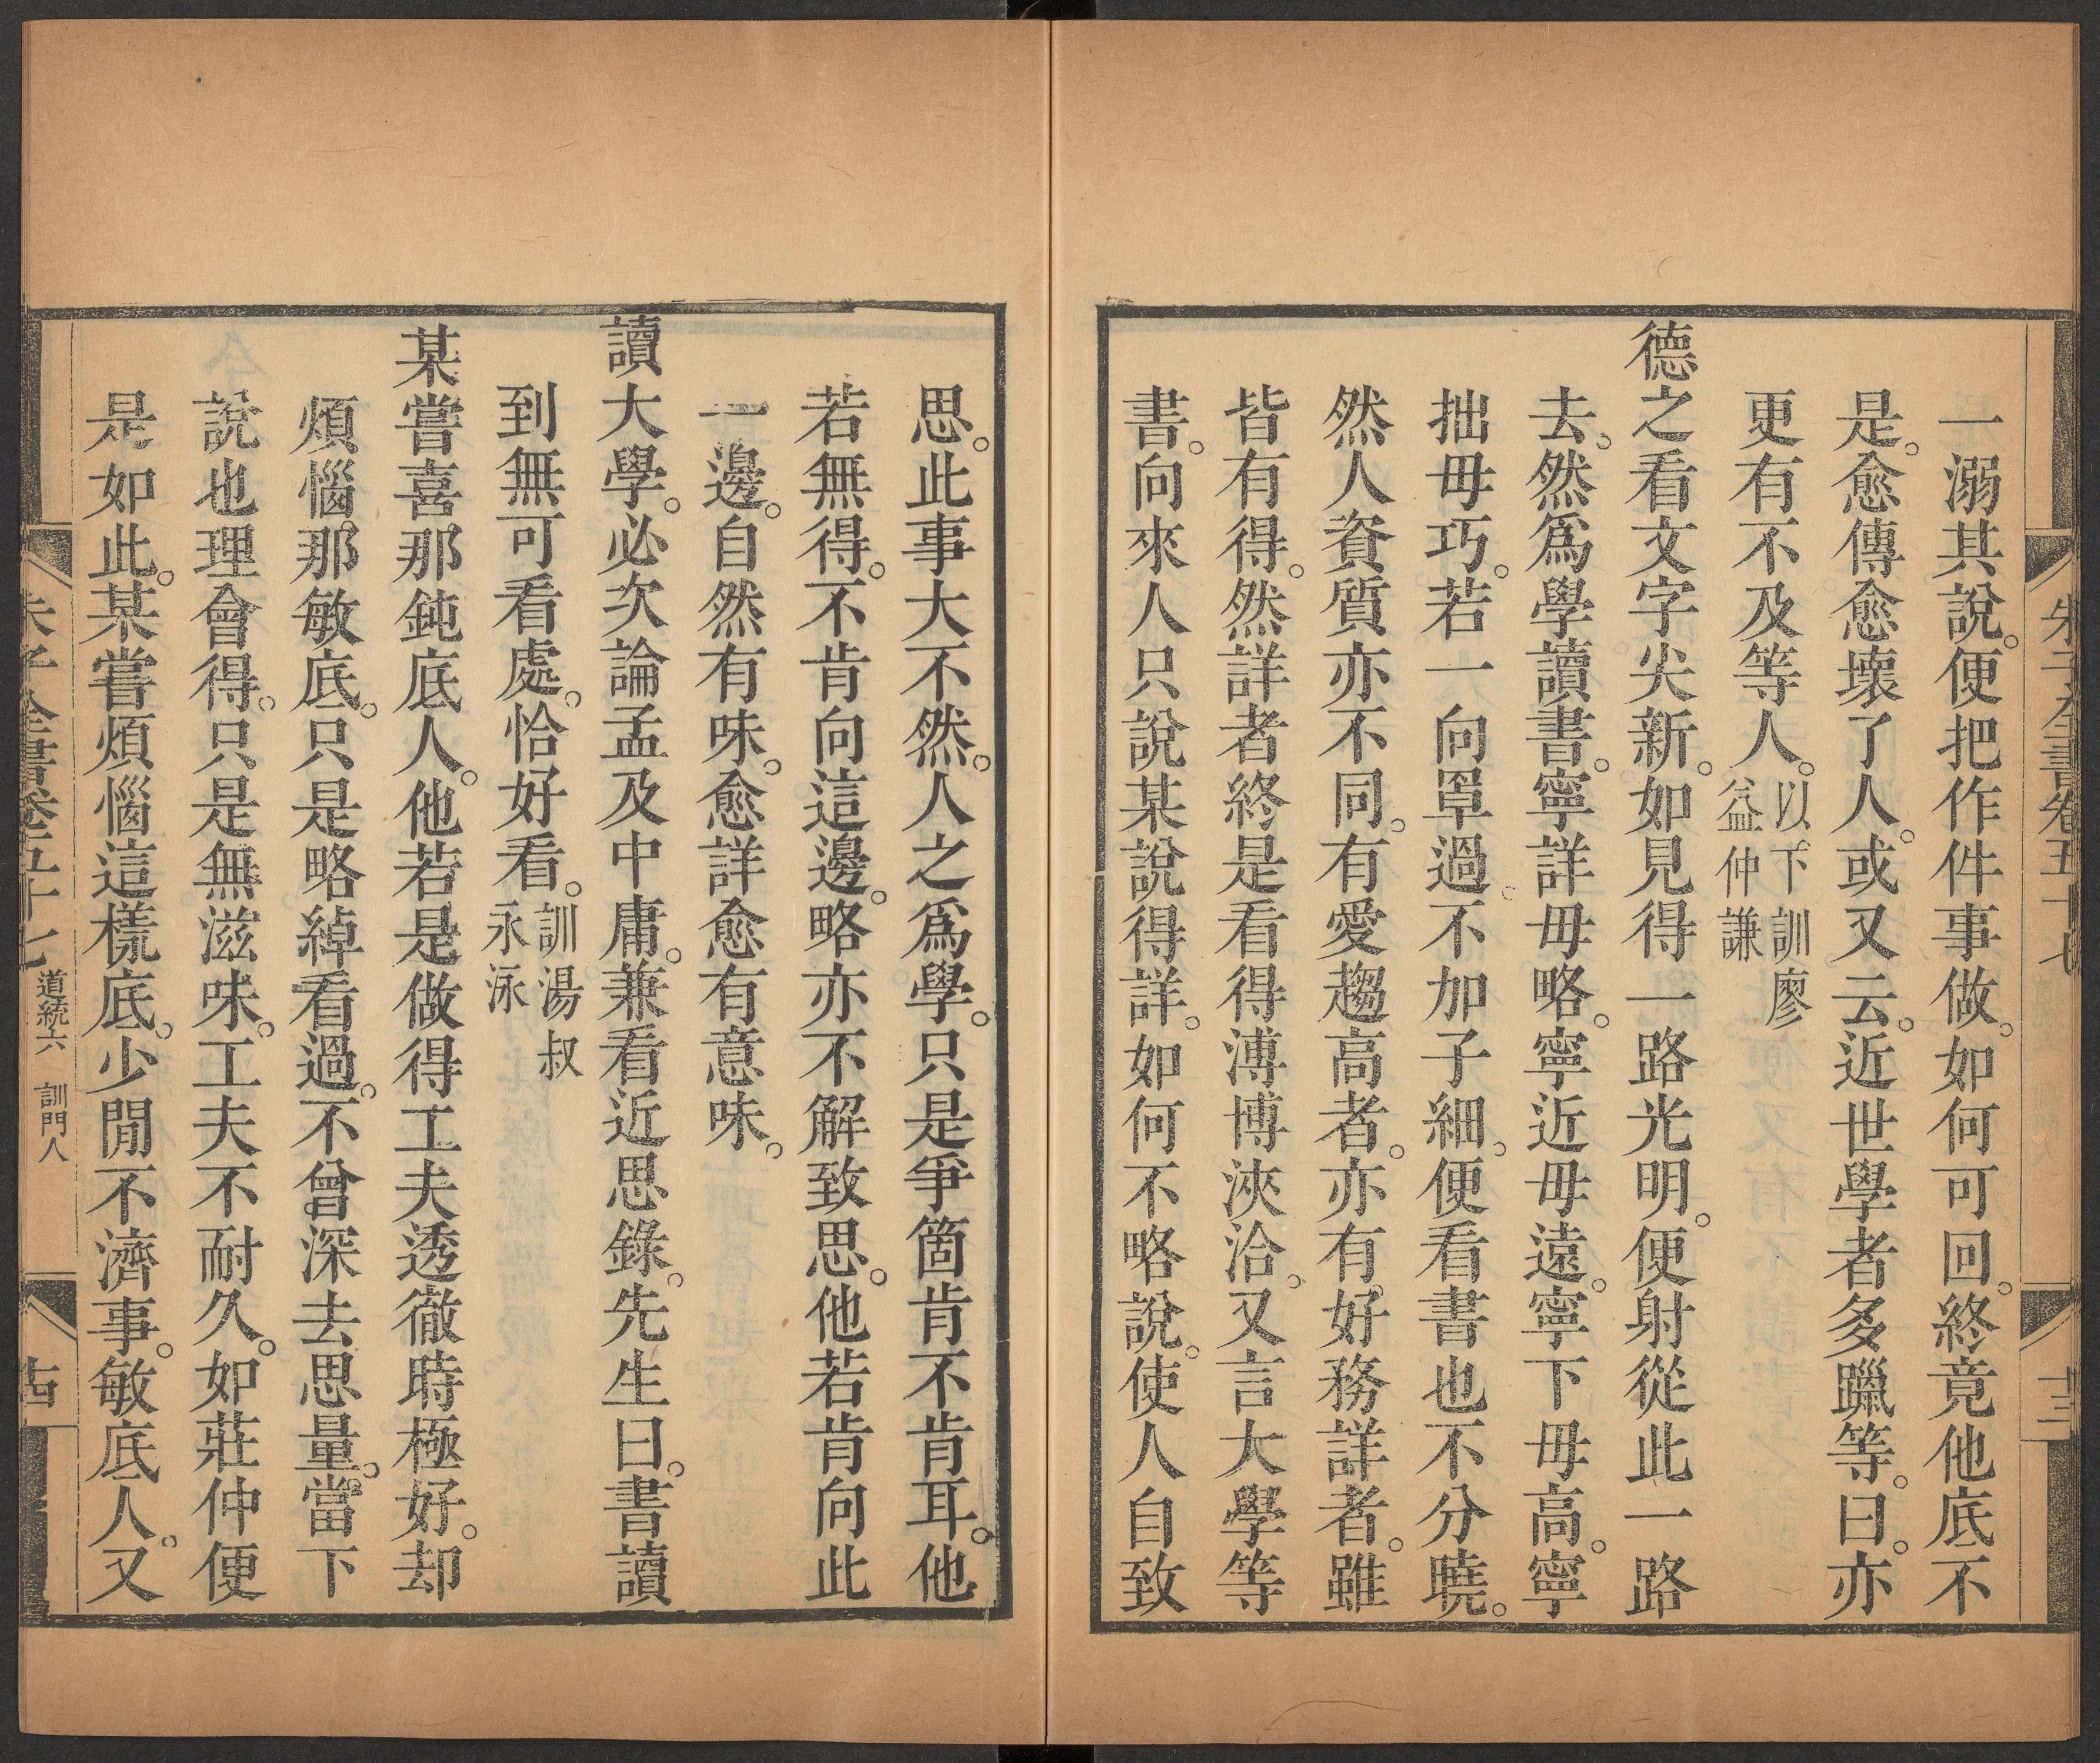 朱子全書卷五十七
十三
一溺其說。便把作件事做。如何可回。終竟他底不
是。愈傳愈壞了人。或又云。近世學者多躐等。曰。亦
更有不及等人。以下訓廖
益仲謙
德之看文字尖新。如見得一路光明。便射從此一路
去。然爲學讀書。寧詳毋略。寧近毋遠。寧下毋高。寧
拙毋巧。若一向罩過。不加子細。便看書也不分曉。
然人資質亦不同。有愛趨高者。亦有好務詳者。雖
皆有得。然詳者終是看得溥博浹洽。又言大學等
書。向來人只說某說得詳。如何不略說。使人自致
思。此事大不然。人之爲學。只是爭箇肯不肯耳。他
若無得。不肯向這邊。略亦不解致思。他若肯向此
一邊。自然有味。愈詳愈有意味。
讀大學。必次論孟及中庸。兼看近思錄。先生曰。書讀
到無可看處。恰好看。訓湯叔
永泳
某嘗喜那鈍底人。他若是做得工夫透徹時極好。却
煩惱那敏底。只是略綽看過。不曾深去思量。當下
說也理會得。只是無滋味。工夫不耐久。如莊仲便
是如此。某嘗煩惱這樣底。少閒不濟事。敏底人。又
朱子全書卷五十七 道統六 訓門人
十四